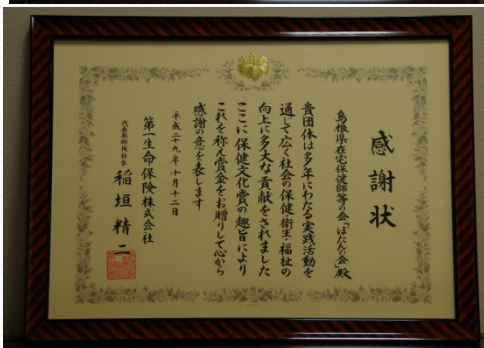 感謝状
島根県在宅保健師等の会「ぼたん会」殿
貴団体は多年にわたる実践活動を
通じて広く社会の保健衛生・福祉の
向上に多大な貢献をされました
ここに保健文化賞の趣旨により
これを称え賞金をお贈りして心から
感謝の意を表します
平成二十九年十月十二日
第一生命保険株式会社
代表取締役社長 稲垣精二